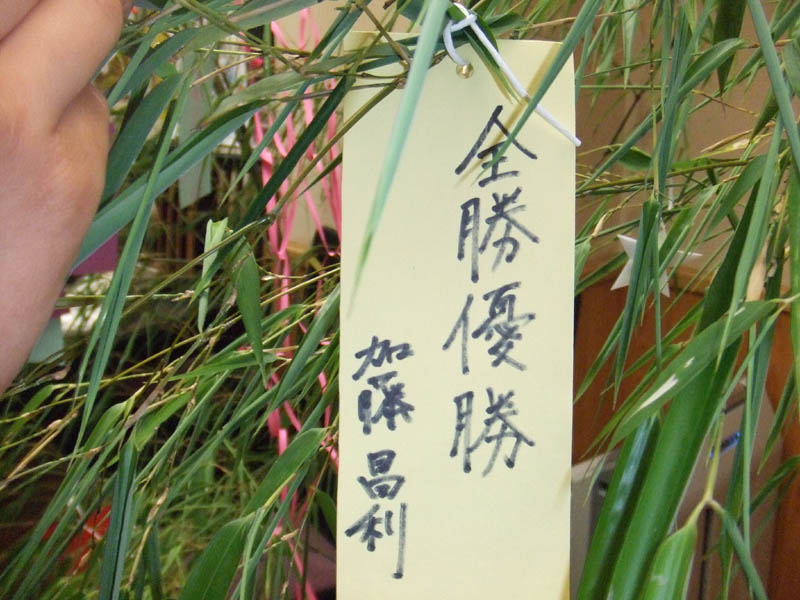 全勝優勝
加藤昌利